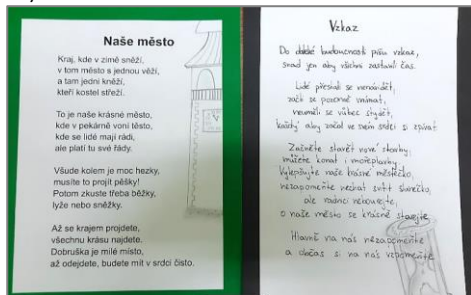 Naše město
Kraj, kde v zimě sněží,
v tom město s jednou věží,
a tam jedni kněží,
kteří kostel střeží.
To je naše krásné město,
kde v pekárně voní těsto,
kde se lidé mají rádi,
ale platí tu své řády.
Všude kolem je moc hezky,
musíte to projít pěšky!
Potom zkuste třeba běžky,
lyže nebo sněžky.
Až se krajem projdete,
všechnu krásu najdete.
Dobruška je milé místo,
až odejdete, budete mít v srdci čisto.
Vzkaz
Do budoucnosti píšu vzkaz,
snad jen aby všichni zastavili čas.
Lidé přestali se nenávidět,
začít se pozorně vnímat,
neuměli se vůbec stydět,
každý aby začal ve svém srdci si zpívat
Začněte stavět nové stavby,
můžete konat i mořeplavby.
Vylepšujte naše krásné městečko,
nezapomeňte nechat svítit slunečko,
ale radnici nebourejte,
o naše město se krásně starejte.
Hlavně na nás nezapomeňte
a občas si na nás vzpomeňte